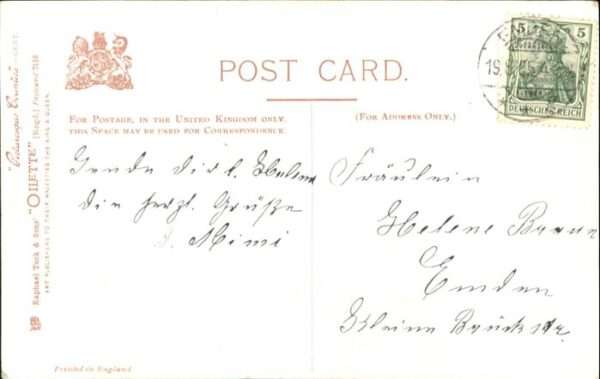 POST CARD.
FOR POSTAGE, IN THE UNITED KINGDOM ONLY,
THIS SPACE MAY BE USED FOR CORRESPONDENCE.
(FOR ADDRESS ONLY.)
Sende dir l. Helene
die herzl. Grüße
Mimi
Fräulein
Helene Braun
Emden
Kleine Brückstr.
5 5
DEUTSCHES REICH
"Picturesque Counties"
Raphael Tuck & Sons' "OILETTE" [Regd.] Postcard
ART PUBLISHERS TO THEIR MAJESTIES THE KING & QUEEN.
Printed in England.